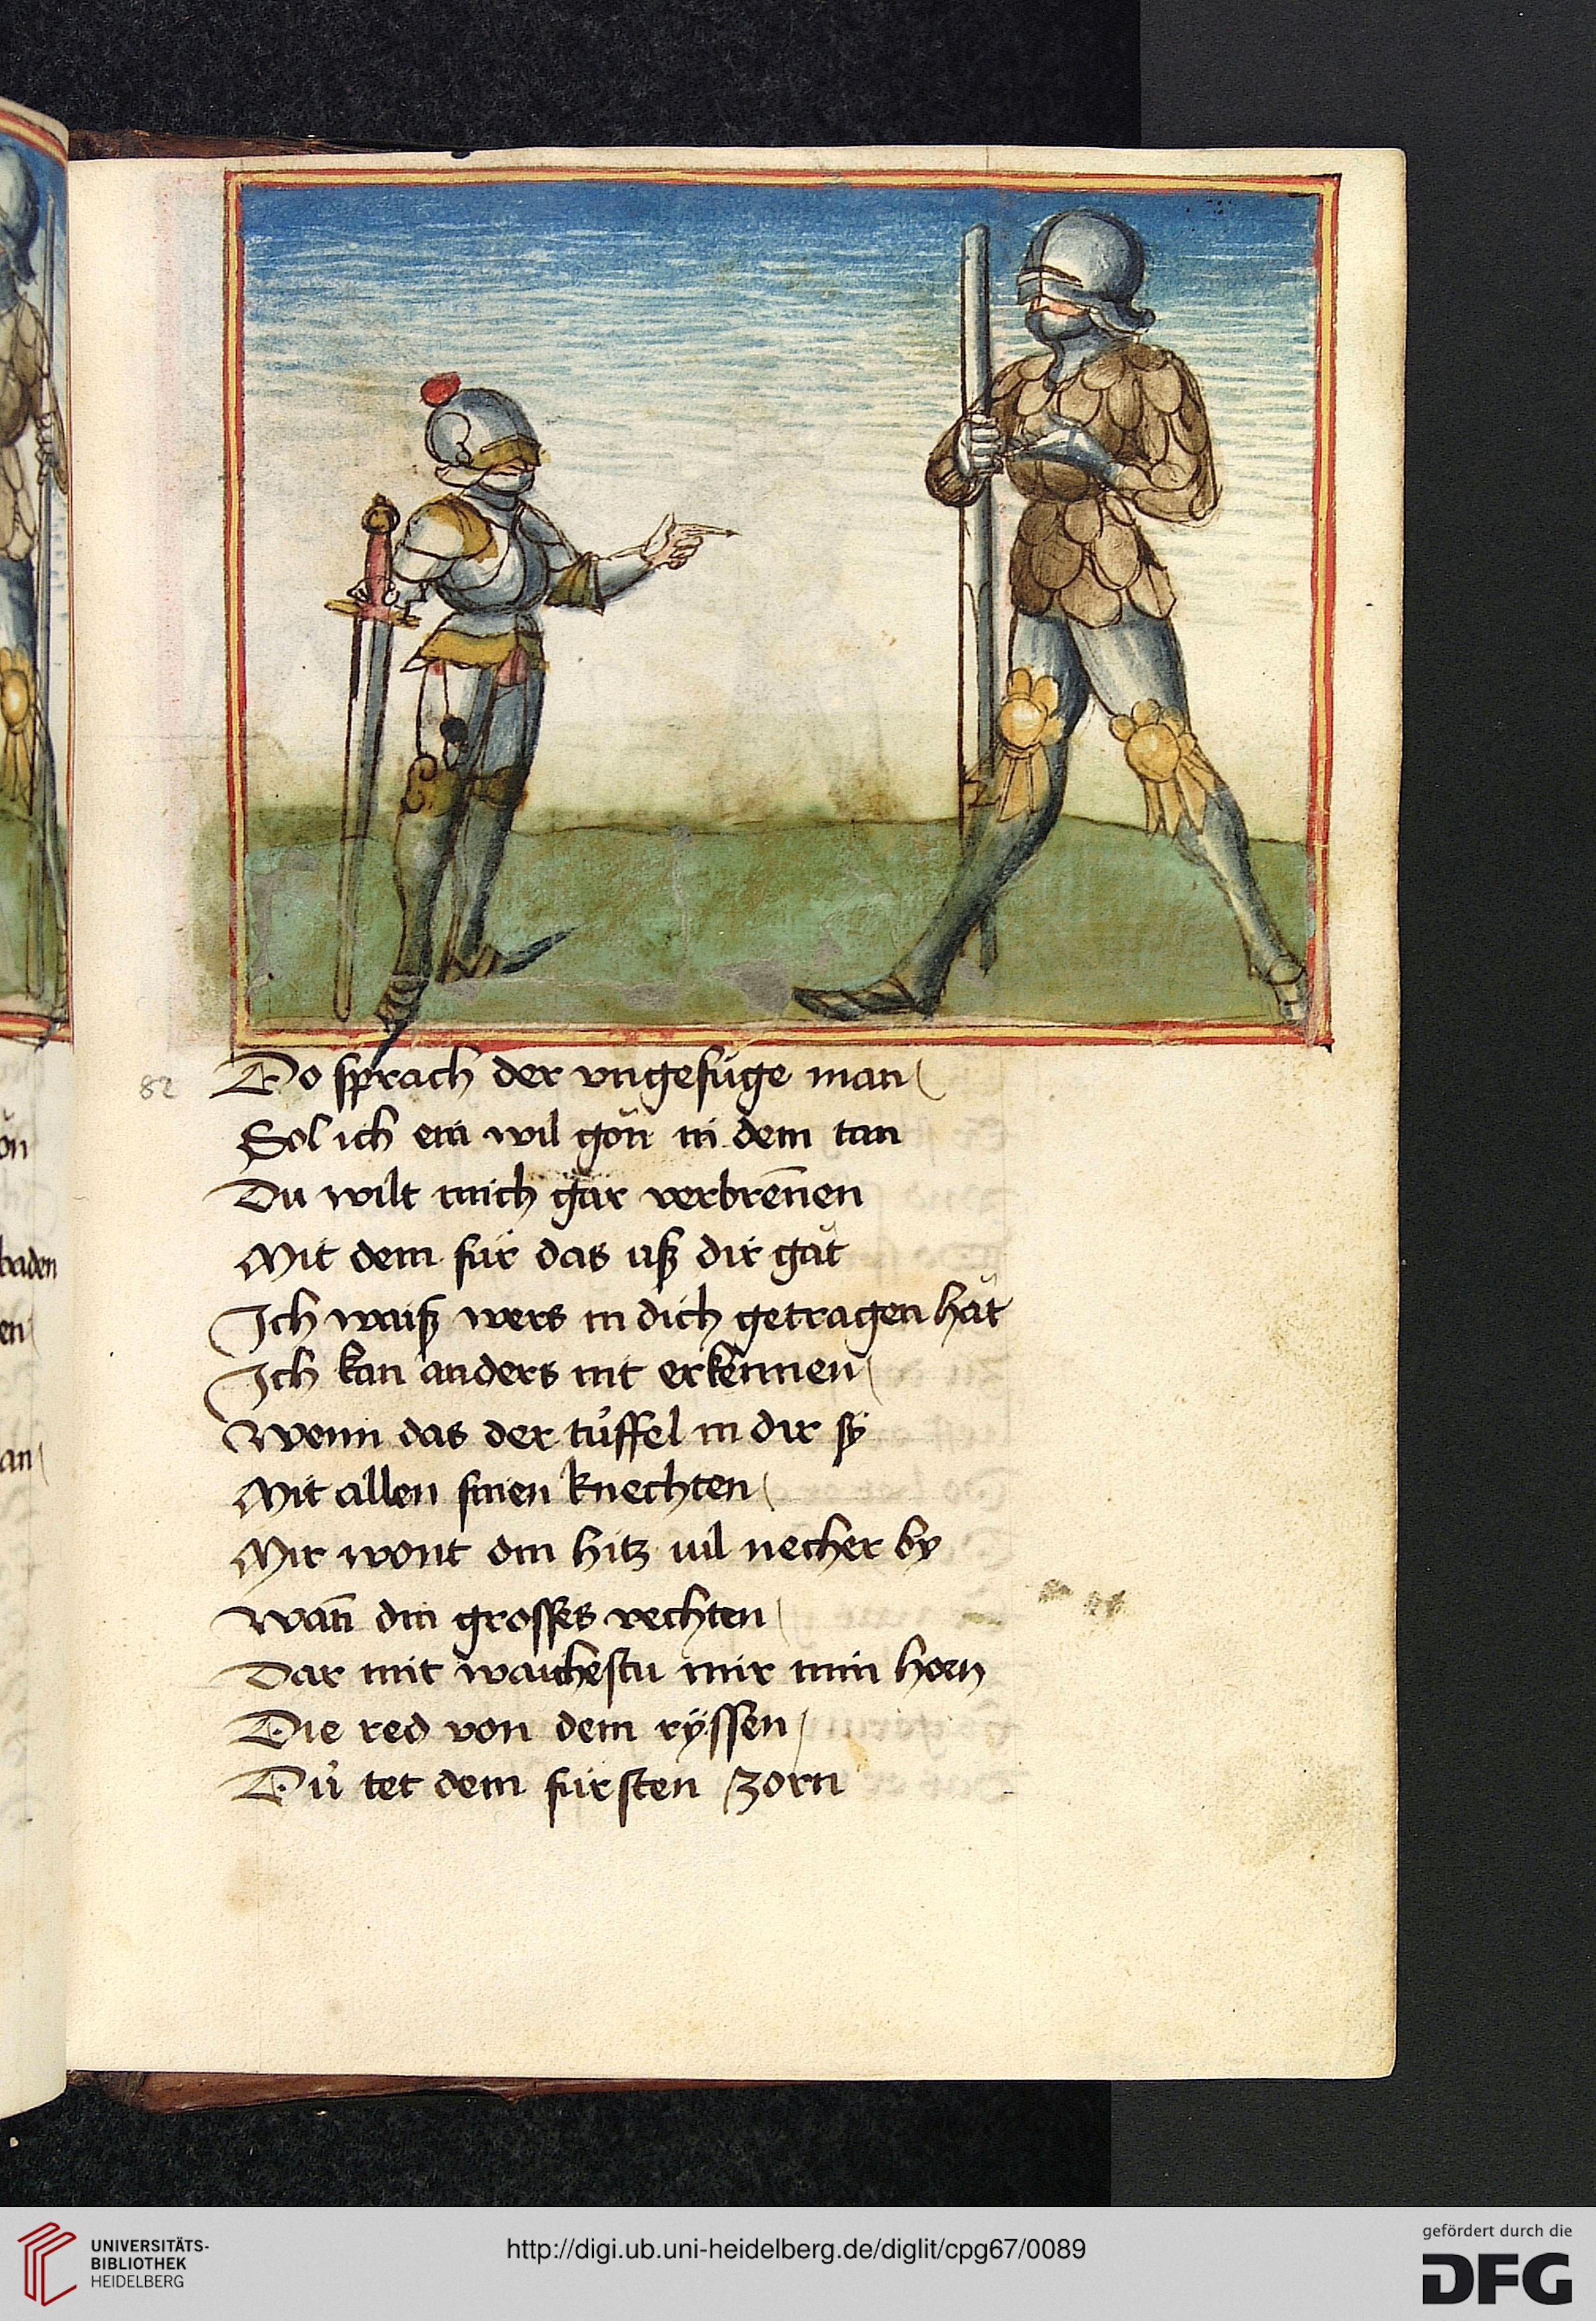 82
Do sprach der vngefüge man
Sol ich ein wil gon in dem tan
Du wilt mich gar verbrēnen
Mit dem für das uß dir gat
Ich waiß wers in dich getragen hat
Ich kan anders nit erkennen
Wenn das der tüffel in dir sÿ
Mit allen sinen knechten
Mir wont din hitz uil necher by
Wan̄ din grosses vechten
Dar mit waichestu mir min horn
Die red von dem ryssen
Dü tet dem fürsten zorn
on
baden
en
an
UNIVERSITÄTS-
BIBLIOTHEK
HEIDELBERG
http://digi.ub.uni-heidelberg.de/diglit/cpg67/0089
gefördert durch die
DFG